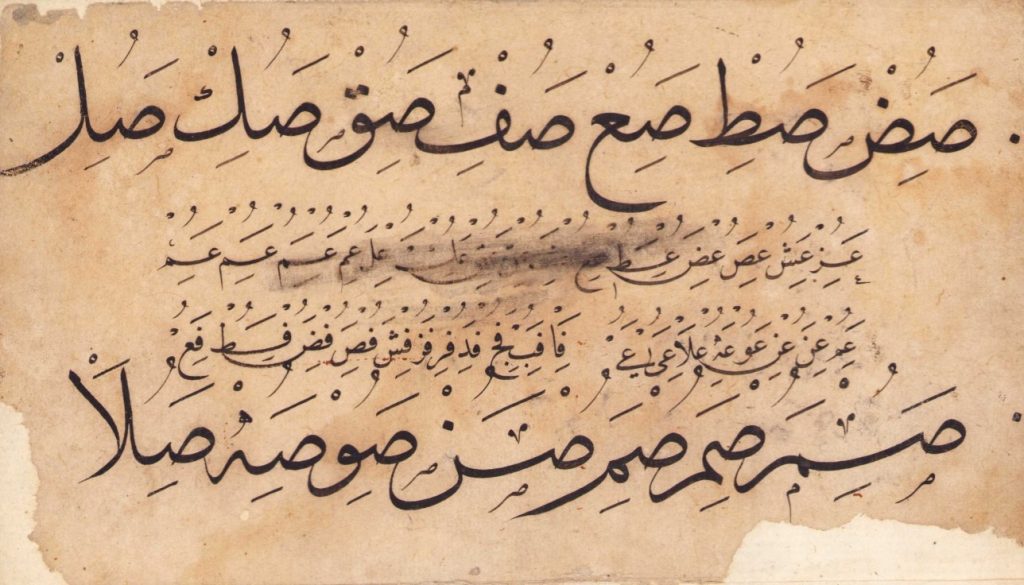 صض صط صع صف صق صك صل
عز عش عص عض عط عك عل عم عم عم عم
عم عن عن عو عه علا عى عى فا فب فج فد فر فز فش فص فض فط فع
صم صم صم صن صو صه صلا